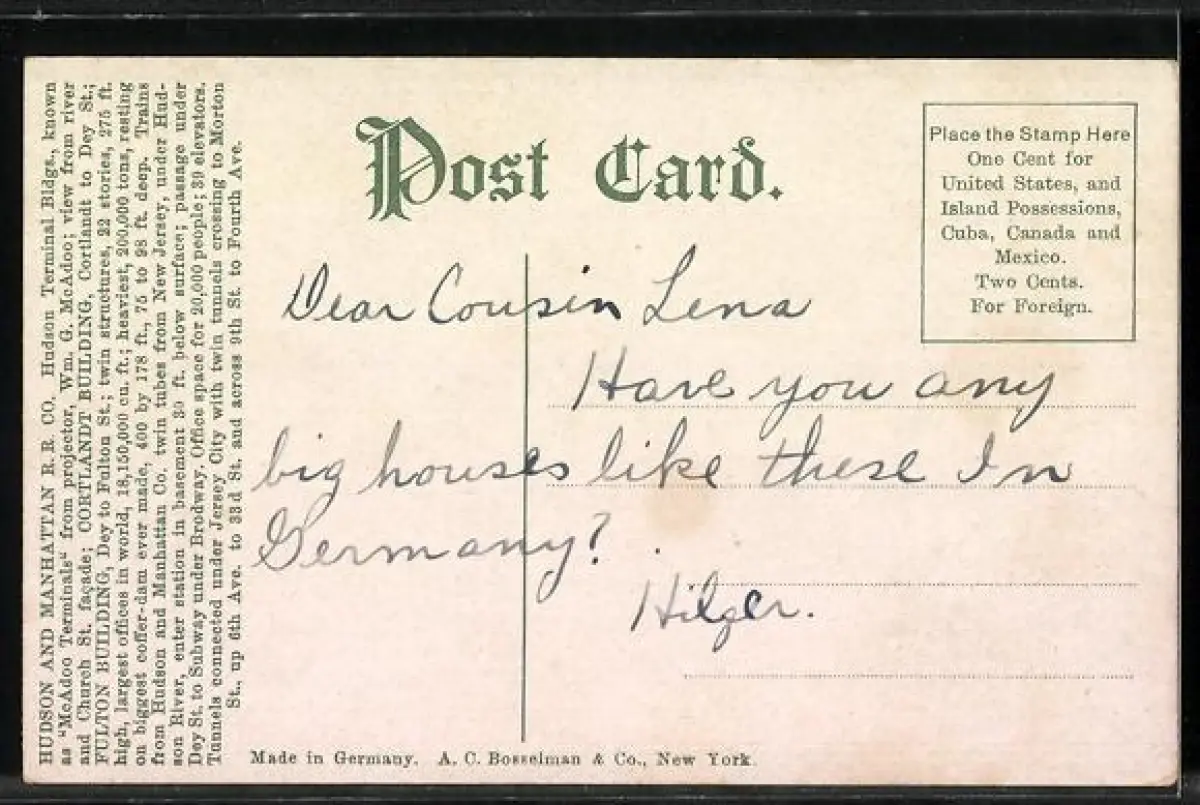 HUDSON AND MANHATTAN R. R. CO. Hudson Terminal Bldgs., known
as "McAdoo Terminals" from projector, Wm. G. McAdoo; view from river
and Church St. façade; CORTLANDT BUILDING, Cortlandt to Dey St.;
FULTON BUILDING, Dey to Fulton St.; twin structures, 22 stories, 275 ft.
high, largest offices in world, 18,150,000 cu. ft.; heaviest, 200,000 tons, resting
on biggest coffer-dam ever made, 400 by 178 ft., 75 to 98 ft. deep. Trains
from Hudson and Manhattan Co. twin tubes from New Jersey, under Hud-
son River, enter station in basement 30 ft. below surface; passage under
Dey St. to Subway under Brodway. Office space for 20,000 people; 39 elevators.
Tunnels connected under Jersey City with twin tunnels crossing to Morton
St., up 6th Ave. to 33d St. and across 9th St. to Fourth Ave.
Post Card.
Place the Stamp Here
One Cent for
United States, and
Island Possessions,
Cuba, Canada and
Mexico.
Two Cents.
For Foreign.
Dear Cousin Lena
Have you any
big houses like these In
Germany?
Hilger.
Made in Germany. A. C. Bosselman & Co., New York.